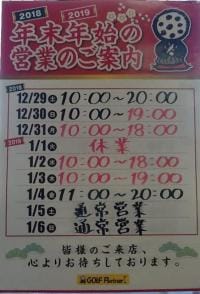 2018 2019
年末年始の
営業のご案内
2018
12/29 土 10:00～20:00
12/30 日 10:00～19:00
12/31 月 10:00～18:00
2019
1/1 火 休業
1/2 水 10:00～18:00
1/3 木 10:00～19:00
1/4 金 11:00～20:00
1/5 土 通常営業
1/6 日 通常営業
皆様のご来店、
心よりお待ちしております。
GOLF Partner